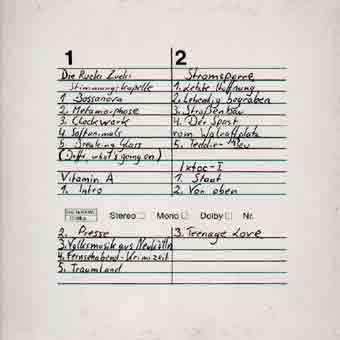 1
Die Rucki Zucki
Stimmungskapelle
1 Bossanova
2. Metamorphose
3. Clockwork
4. Softanimals
5. Breaking Glass
(Doffi, what's going on)
Vitamin A
1. Intro
2
Stromsperre
1. Letzte Hoffnung
2. Lebendig begraben
3. Straßenbau
4. Der Spast
vom Walraffplatz
5. Teddy-Boy
Ixtoc-I
1. Staat
2. Von oben
Stereo Mono Dolby Nr.
2. Presse
3. Volksmusik aus Neukölln
4. Fernsehabend-Krimizeit
5. Traumland
3. Teenage Love